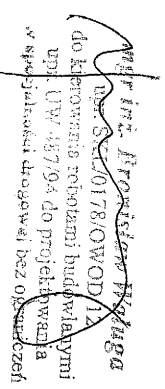 mgr inż. Bronisław
upr. SLK/0178/OWOD/12
do kierowania robotami budowlanymi
upr. UW 487/94 do projektowania
w specjalności drogowej bez ograniczeń